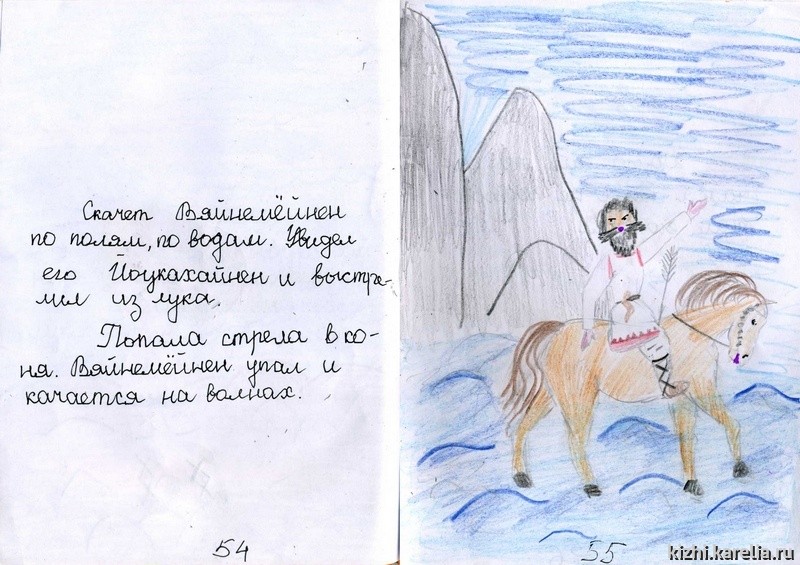 Скачет Вяйнемёйнен
по полям, по водам. Увидел
его Йоукахайнен и выстре-
лил из лука.
Попала стрела в ко-
ня. Вяйнемёйнен упал и
качается на волнах.
54
55
kizhi.karelia.ru